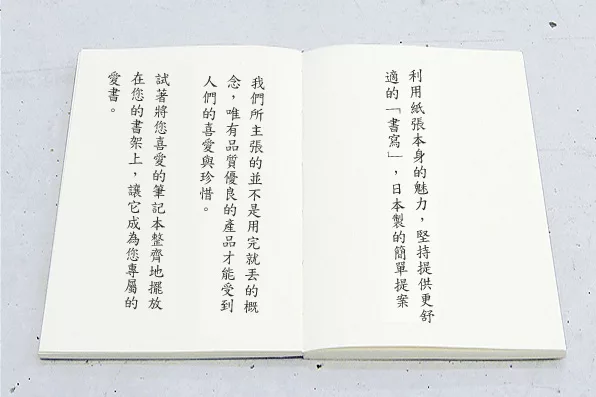 利用紙張本身的魅力，堅持提供更舒
適的「書寫」，日本製的簡單提案
我們所主張的並不是用完就丟的概
念，唯有品質優良的產品才能受到
人們的喜愛與珍惜。
試著將您喜愛的筆記本整齊地擺放
在您的書架上，讓它成為您專屬的
愛書。